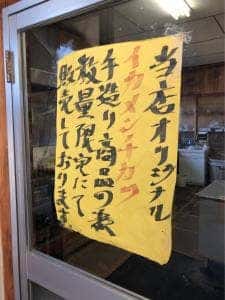 当店オリジナル
イカメンチカツ
手造り商品の為
数量限定にて
販売しております。